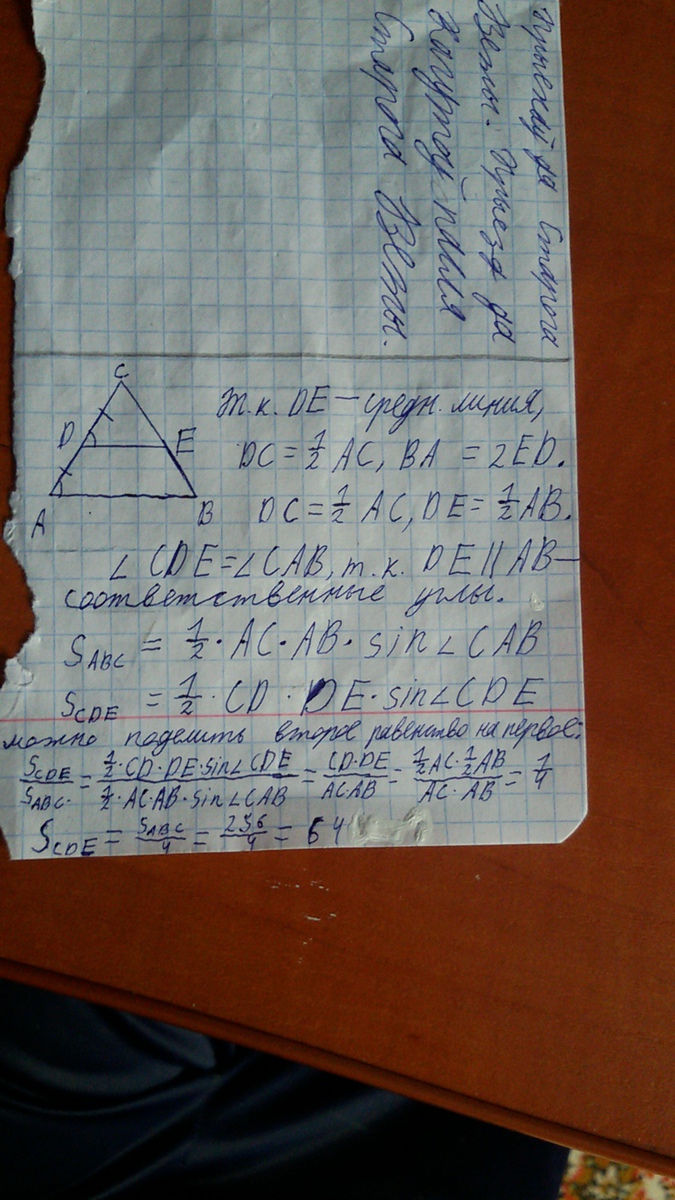 Прыехаў да Старога
Вежы. Прыезд да
Старога Вежы.
C
D
E
A
B
Т.к. DE — средн. линия,
DC = 1/2 AC, BA = 2ED.
DC = 1/2 AC, DE = 1/2 AB.
∠ CDE = ∠ CAB, т.к. DE || AB —
соответственные углы.
S_ABC = 1/2 · AC · AB · sin ∠ CAB
S_CDE = 1/2 · CD · DE · sin ∠ CDE
можно поделить второе равенство на первое:
S_CDE / S_ABC. = (1/2 · CD · DE · sin ∠ CDE) / (1/2 · AC · AB · sin ∠ CAB) = (CD · DE) / (AC · AB) = (1/2 AC · 1/2 AB) / (AC · AB) = 1/4
S_CDE = S_ABC / 4 = 256 / 4 = 64